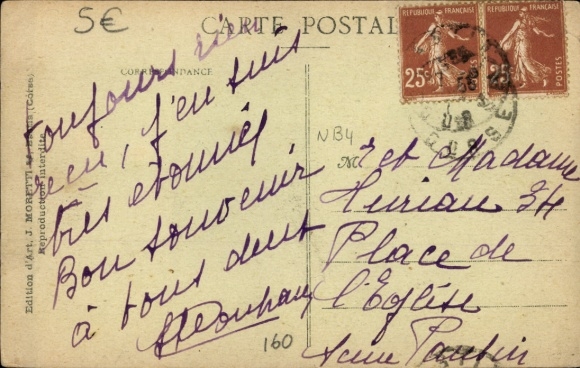 5€
CARTE POSTALE
CORRESPONDANCE
toujours rien
reçu, j'en suis
très étonnée
Bon souvenir
à tous deux
160
NB4
Mr et Madame
34
Place de
l'Eglise
Pantin
REPUBLIQUE FRANÇAISE
25c POSTES
REPUBLIQUE FRANÇAISE
25c POSTES
Edition d'Art, J. MORETTI (Corse)
Reproduction interdite